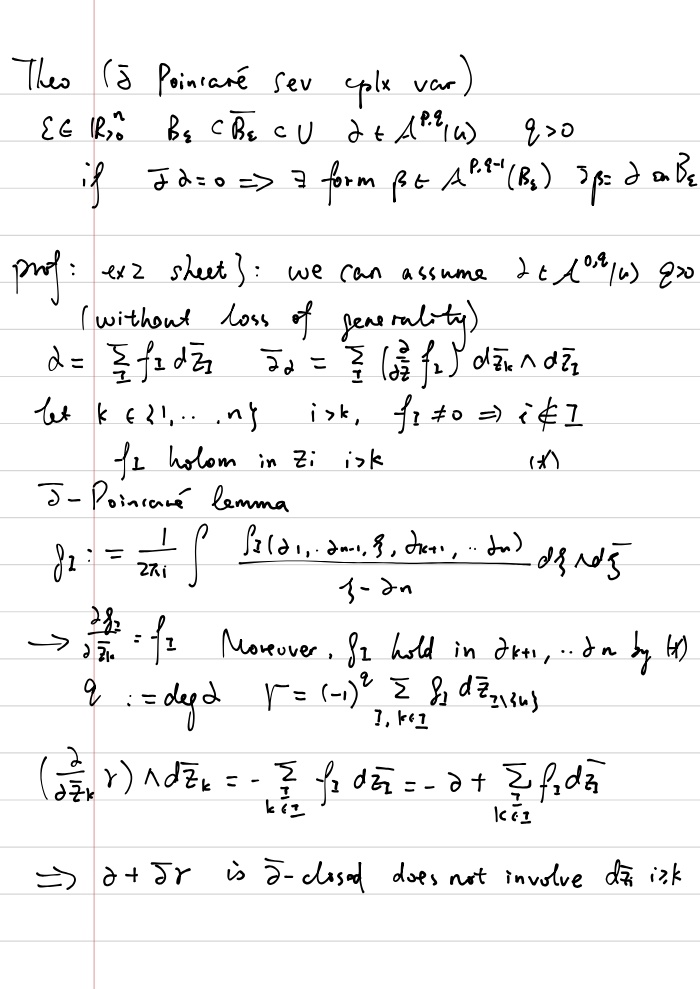 Theo (∂̄ Poincaré sev cplx var)
ε ∈ ℝ>0^n   B_ε ⊂ B̄_ε ⊂ U   α ∈ A^{p,q}(U)   q>0
if ∂̄α=0 => ∃ form β ∈ A^{p,q-1}(B_ε)   ∂̄β= α on B_ε
proof: ex2 sheet3: we can assume α ∈ A^{0,q}(U) q>0
(without loss of generality)
α = Σ_I f_I dz̄_I   ∂̄α = Σ_I (∂/∂z̄ f_I) dz̄_k ∧ dz̄_I
let k ∈ {1,...n}   i>k,   f_I ≠ 0 => i ∉ I
f_I holom in z_i i>k   (*)
∂̄-Poincaré lemma
g_I := 1/2πi ∫ f_I(z_1,..z_{n-1}, ξ, z_{k+1},..z_n)/(ξ-z_n) dξ∧dξ̄
→ ∂g_I/∂z̄_k = f_I   Moreover, g_I hold in z_{k+1},..z_n by (*)
q := deg α   γ = (-1)^q Σ_{I, k∈I} g_I dz̄_{I\{k}}
(∂/∂z̄_k γ) ∧ dz̄_k = - Σ_{I, k∈I} f_I dz̄_I = - α + Σ_{I, k∉I} f_I dz̄_I
=> α + ∂̄γ is ∂̄-closed does not involve dz̄_i i≥k